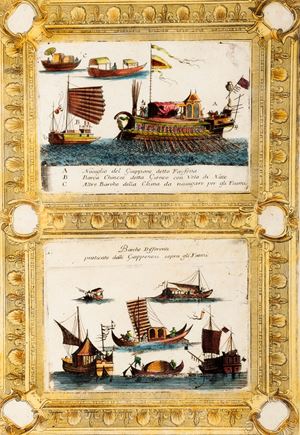 A Naviglio del Giappone detto
B Barca Chinese detta con Vele di
C Altre Barche della China da navigare per gli Fiumi
Barche Differenti
praticate dalli Giapponesi sopra gli Fiumi